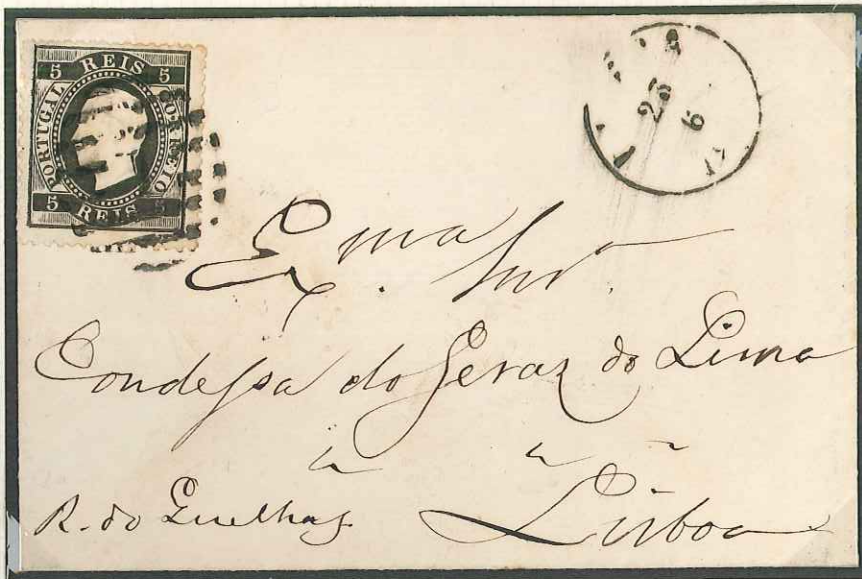 5 REIS 5
PORTUGAL CORREIO
5 REIS 5
25
6
Exma Snrª
Condessa do Geraz do Lima
R. do Quelhas
Lisboa